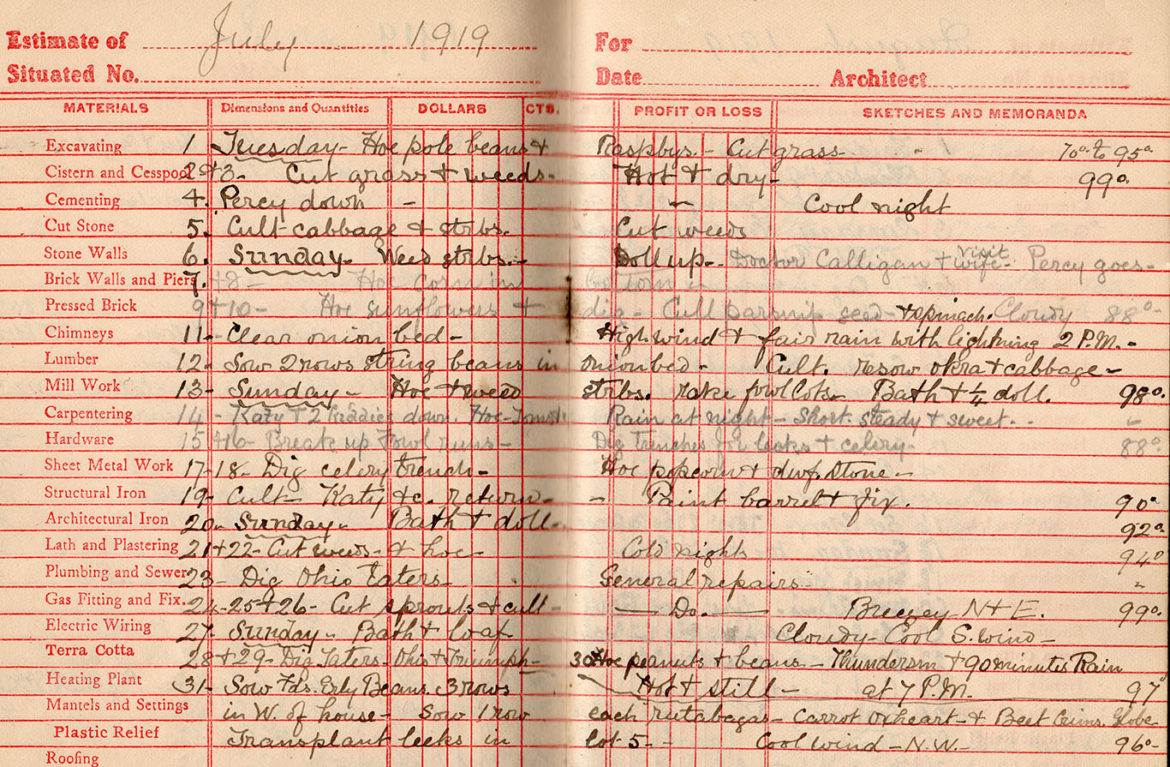 Estimate of July 1919 For
Situated No. Date Architect
MATERIALS Dimensions and Quantities DOLLARS CTS. PROFIT OR LOSS SKETCHES AND MEMORANDA
Excavating 1 Tuesday- Hoe pole beans + Raspbys. - Cut grass 70° to 95°
Cistern and Cesspool 2+3- Cut grass + weeds- Hot + dry- 99°
Cementing 4. Percy down - " Cool night
Cut Stone 5. Cult cabbage & strbs. Cut weeds
Stone Walls 6. Sunday- Weed strbs.- Doll up- Doctor Calligan + wife visit- Percy goes-
Brick Walls and Piers 7. +8- Hoe corn in bottom
Pressed Brick 9+10- Hoe sunflowers + dig- Cull parsnip seed- + spinach. Cloudy 88°-
Chimneys 11- Clear onion bed- High wind & fair rain with lightning 2 P.M.-
Lumber 12- Sow 2 rows string beans in onion bed- Cult. resow okra + cabbage-
Mill Work 13- Sunday- Hoe + weed strbs. rake fowl lots- Bath + ¼ doll. 98°-
Carpentering 14- Katy + 2 kiddies down. Hoe Rain at night- Short. steady & sweet. . "
Hardware 15+16- Break up fowl runs- Dig trenches for leeks + celery- 88°
Sheet Metal Work 17-18- Dig celery trench- Hoe popcorn + dwf. Stone-
Structural Iron 19- Cult- Katy &c. return- - Paint barrel + fix. 90°
Architectural Iron 20- Sunday- Bath + doll- 92°
Lath and Plastering 21+22- Cut weeds- & hoe Cold nights 94°
Plumbing and Sewer 23- Dig Ohio taters- General repairs- "
Gas Fitting and Fix. 24-25+26- Cut sprouts & cull- - Do. - Breezy N + E. 99°
Electric Wiring 27- Sunday- Bath + loaf Cloudy- Cool S. wind-
Terra Cotta 28+29- Dig taters- Ohio + Triumph- 30 Hoe peanuts + beans- Thunderstm + 90 minutes Rain
Heating Plant 31- Sow Fds. Erly Beans. 3 rows Hot & still- at 7 P.M. 97°
Mantels and Settings in W. of house- Sow 1 row each rutabagas- Carrot Oxheart- & Beet Crims. Globe-
Plastic Relief Transplant leeks in lot 5- - Cool wind- N.W.- 96°-
Roofing